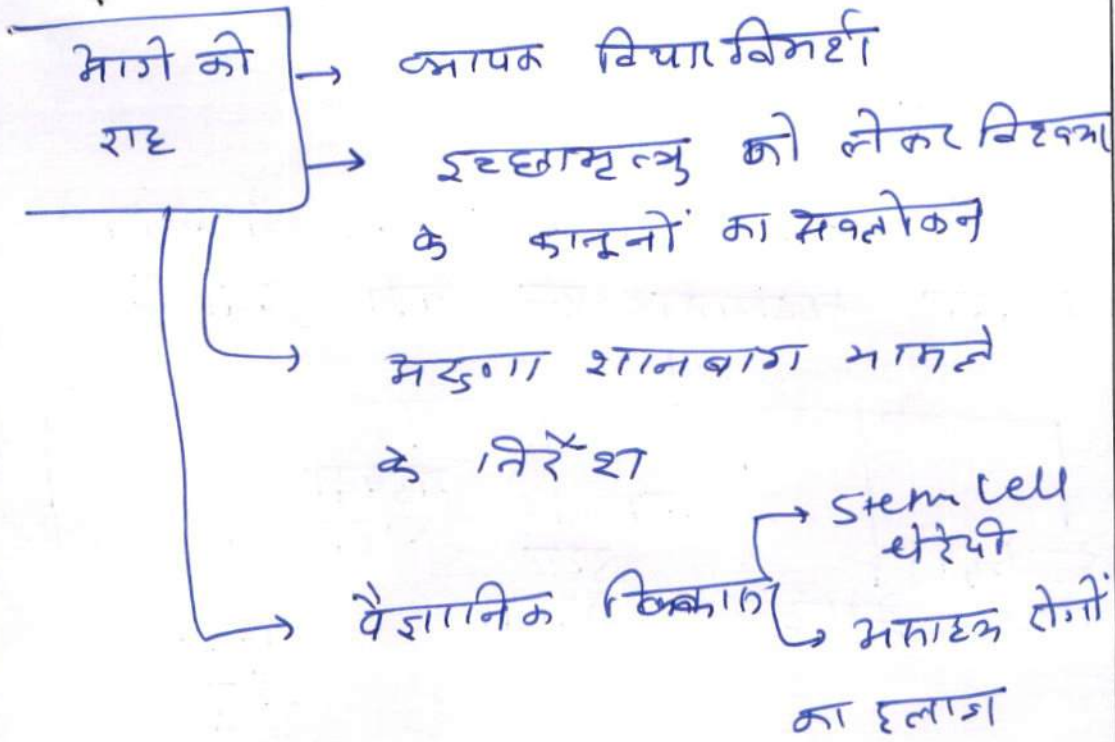 आगे की
राह
→ व्यापक विचार विमर्श
→ इच्छामृत्यु को लेकर विश्वभर
के कानूनों का अवलोकन
→ अरुणा शानबाग मामले
के निर्देश
→ वैज्ञानिक विकास
→ Stem Cell
थेरेपी
→ असाध्य रोगों
का इलाज